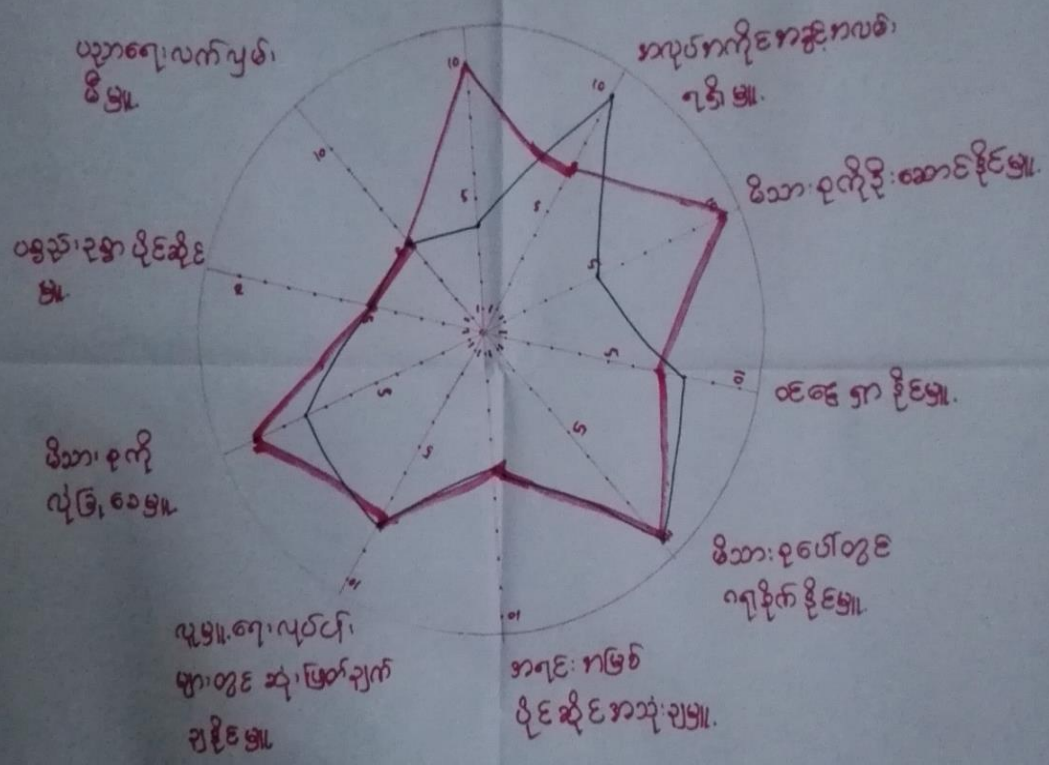 ပညာရေးလက်လှမ်း
မီမှု။
အလုပ်အကိုင်အခွင့်အလမ်း
ရရှိမှု။
မိသားစုကိုဦးဆောင်နိုင်မှု။
ဝင်ငွေရှာနိုင်မှု။
မိသားစုပေါ်တွင်
ဂရုစိုက်နိုင်မှု။
အရင်းအမြစ်
ပိုင်ဆိုင်အသုံးချမှု။
လူမှုရေးလုပ်ငန်း
များတွင် ဆုံးဖြတ်ချက်
ချနိုင်မှု။
မိသားစုကို
လုံခြုံစေမှု။
ပစ္စည်းဥစ္စာပိုင်ဆိုင်
မှု။
10
10
10
10
10
10
5
5
5
5
5
5
5